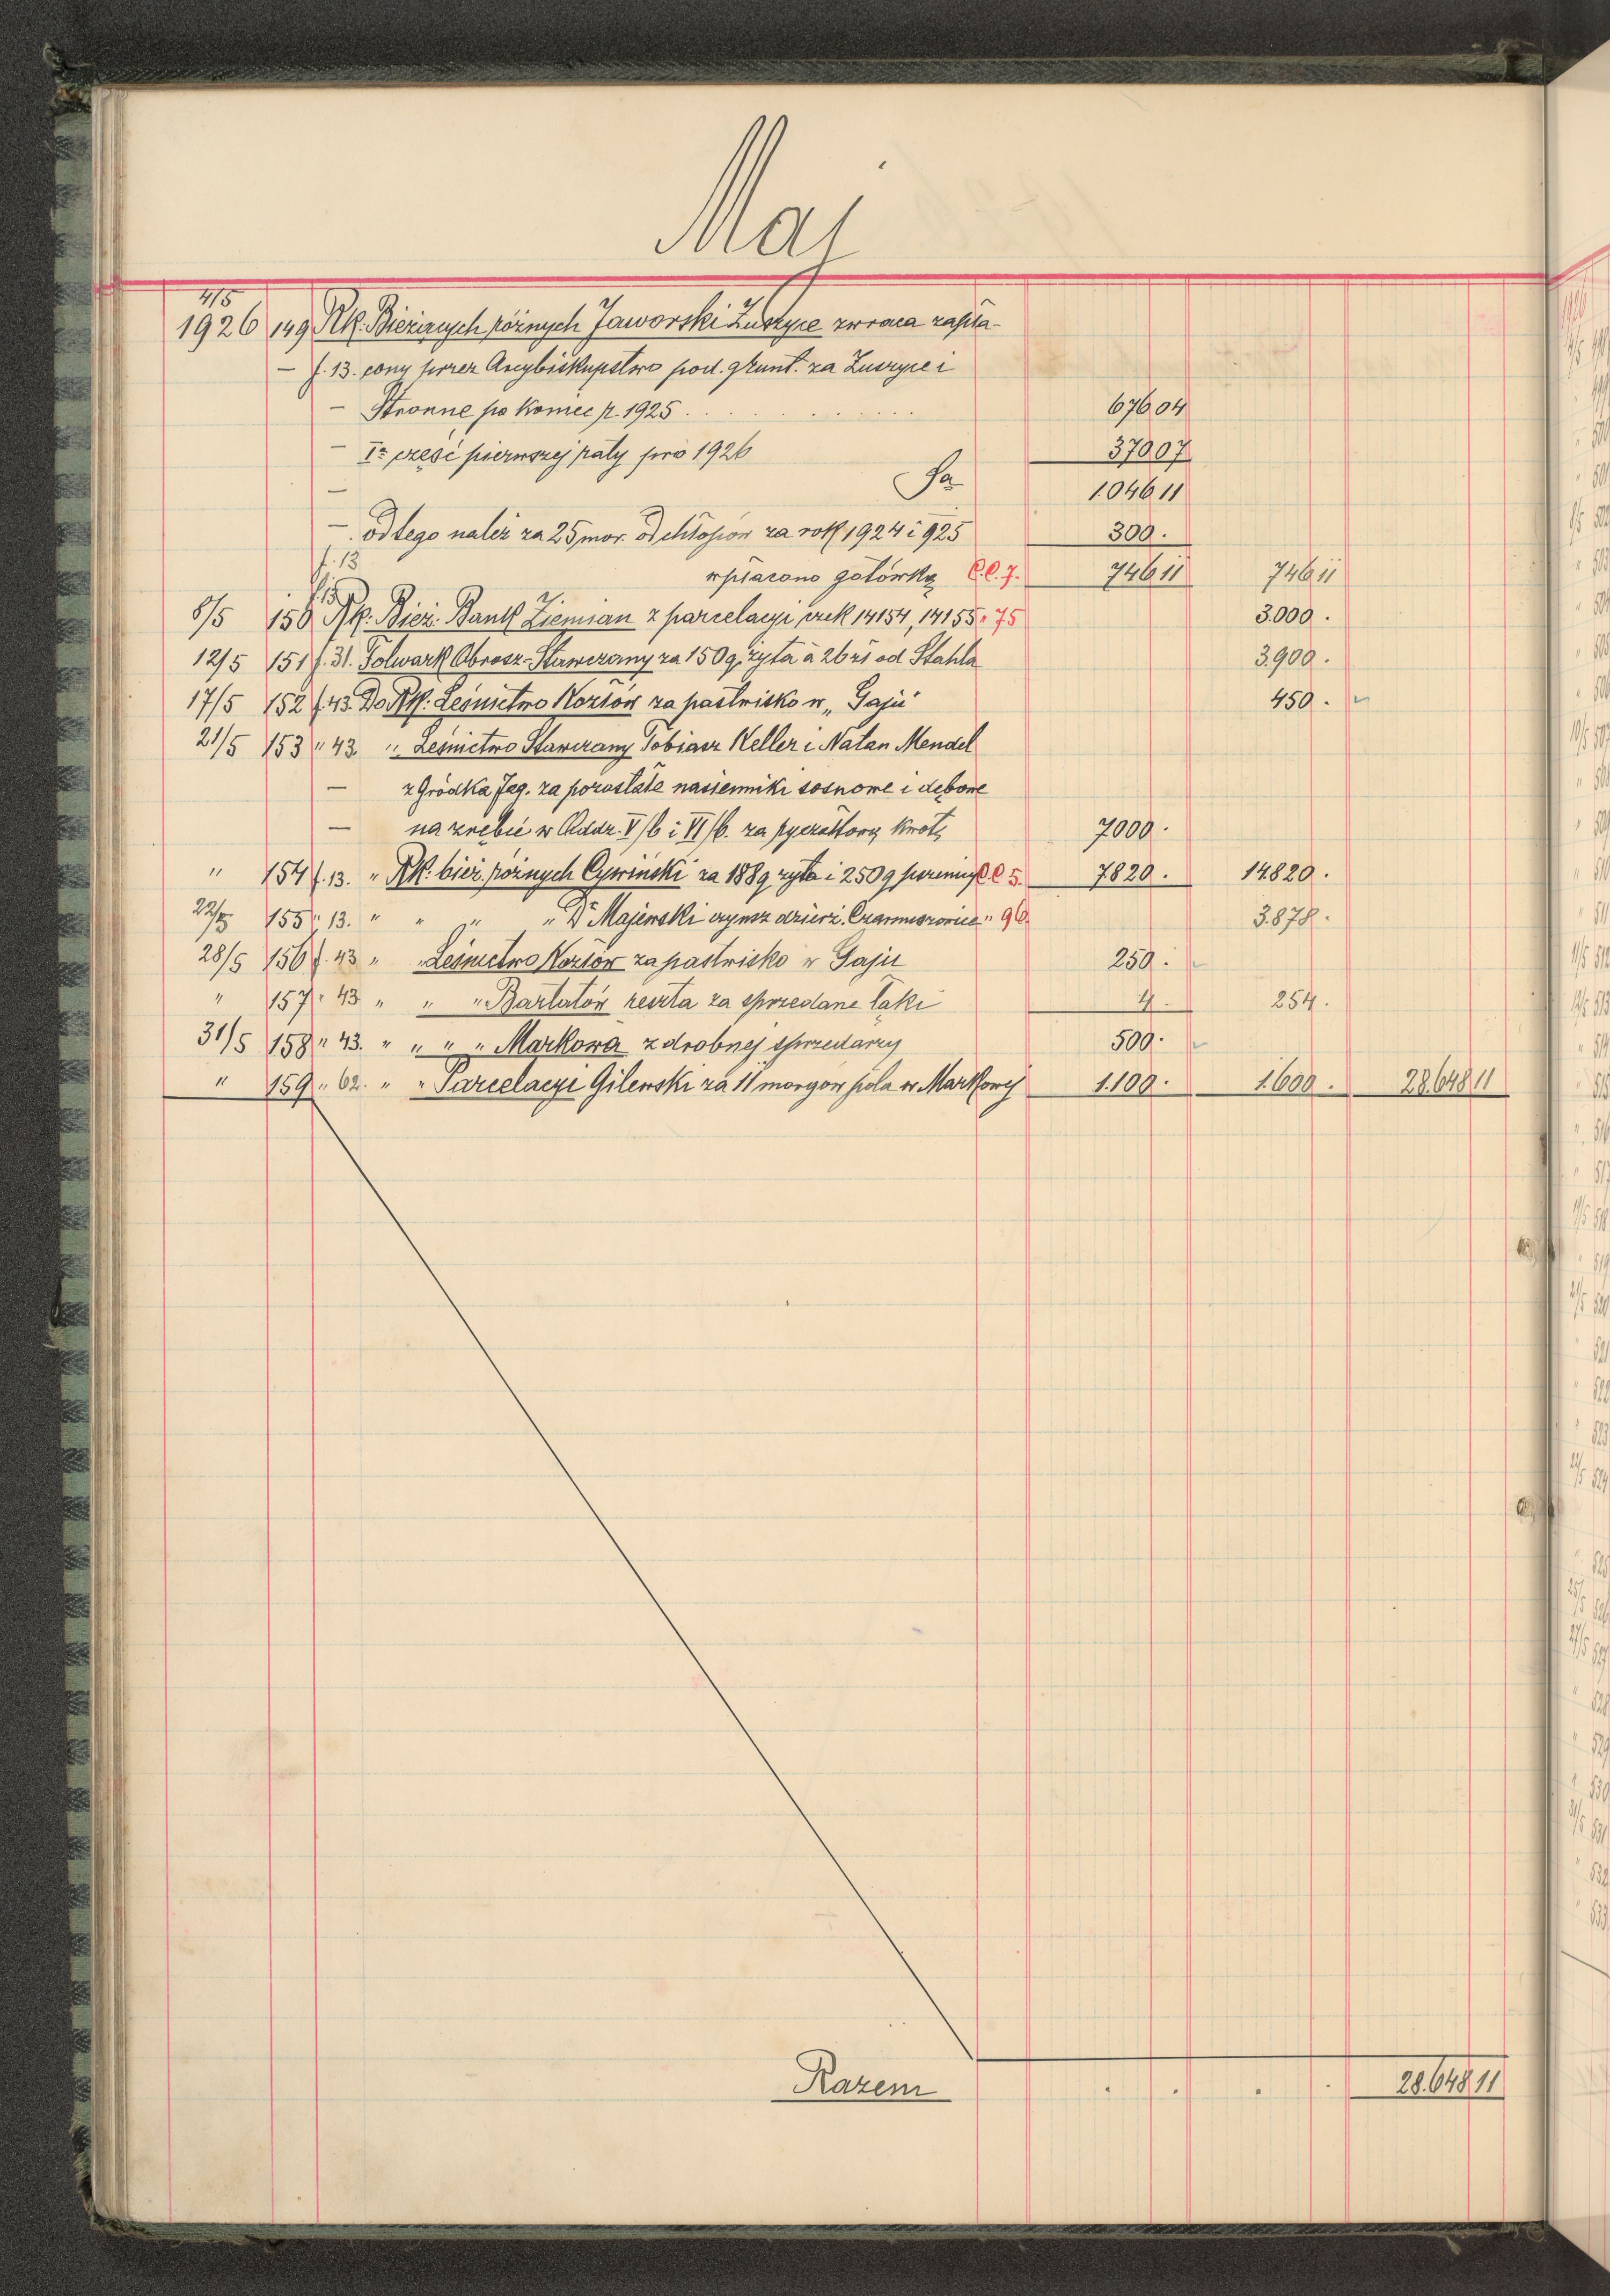 Maj
4/5
1926 149 Rk. Bieżących różnych Jaworski Zuszyce zwraca zapła-
— f. 13. cony przez Arcybiskupstwo pod. grunt. za Zuszyce i
— Stronne po koniec r. 1925 . . . . . . . . 676 04
— Ią część pierwszej raty pro 1926 370 07
— Sa 1.046 11
— od tego należ. za 25 mor. od chłopów za rok 1924 i 925 300 .
f. 13 wpłacono gotówką C.C. 7. 746 11 746 11
f. 13
8/5 150 Rk. Bież. Bank Ziemian z parcelacyi czek 14154, 14155 " 75 3.000 .
12/5 151 f. 31. Folwark Obrosz.-Stawczany za 150 q. żyta à 26 zł od Stahla 3.900 .
17/5 152 f. 43. Do Rk. Leśnictwo Kozłów za pastwisko w „Gaju" 450 .
21/5 153 " 43 " Leśnictwo Stawczany Tobiasz Keller i Natan Mendel
— z Gródka Jag. za pozostałe nasienniki sosnowe i dębowe
— na zrębie w Oddz. V/b i VI/b. za ryczałtową kwotę 7000 .
" 154 f. 13. " Rk. bież. różnych Cywiński za 188 q żyta i 250 q pszenicy C.C 5. 7820 . 14.820 .
22/5 155 " 13. " " " " Dr Majewski czynsz dzierż. Czarnuszowice " 90. 3.878 .
28/5 156 f. 43 " " Leśnictwo Kozłów za pastwisko w Gaju 250 .
" 157 " 43 " " " Bartatów reszta za sprzedane łąki 4 . 254 .
31/5 158 " 43. " " " " Markowa z drobnej sprzedaży 500 .
" 159 " 62. " " Parcelacyi Gilewski za 11 morgów pola w Markowej 1.100 . 1.600 . 28.648 11
Razem . . . . 28.648 11